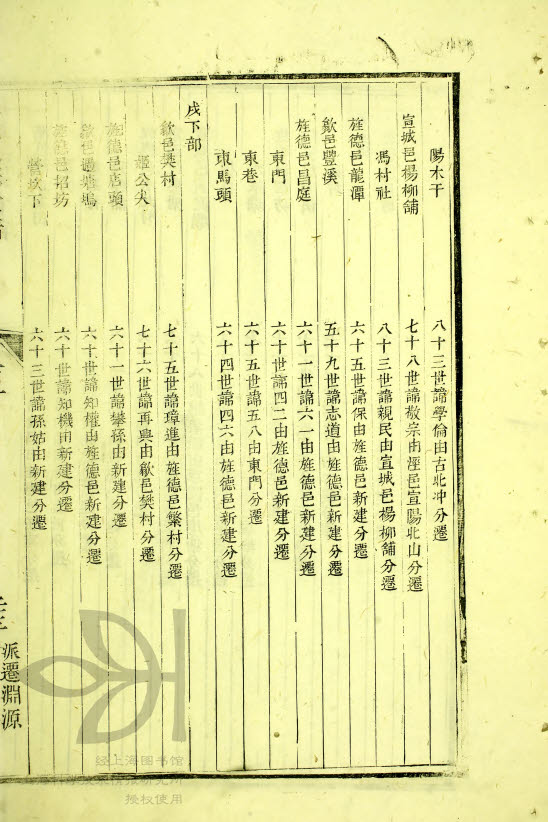 陽木干 八十三世諱學倫由古北冲分遷
宣城邑楊柳舖 七十八世諱敬宗由涇邑宣陽北山分遷
馮村社 八十三世諱親民由宣城邑楊柳舖分遷
旌德邑龍潭 六十五世諱保由旌德邑新建分遷
歙邑豐溪 五十九世諱志道由旌德邑新建分遷
旌德邑昌庭 六十一世諱六一由旌德邑新建分遷
東門 六十世諱四二由旌德邑新建分遷
東巷 六十五世諱五八由東門分遷
東馬頭 六十四世諱四六由旌德邑新建分遷
戌下部
歙邑樊村 七十五世諱璋進由旌德邑繁村分遷
姬公尖 七十六世諱再興由歙邑樊村分遷
旌德邑店頭 六十一世諱攀孫由新建分遷
歙邑 六十世諱知權由旌德邑新建分遷
旌德邑招坊 六十世諱知機由新建分遷
坎下 六十三世諱孫姑由新建分遷
派遷淵源
经上海图书馆
授权使用